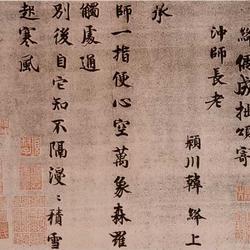 絳偈成拙頌寄
沖師長老
潁川韓絳上
永
師一指便心空萬象森羅
觸處通
別後自它知不隔漫〻積雪
起寒風